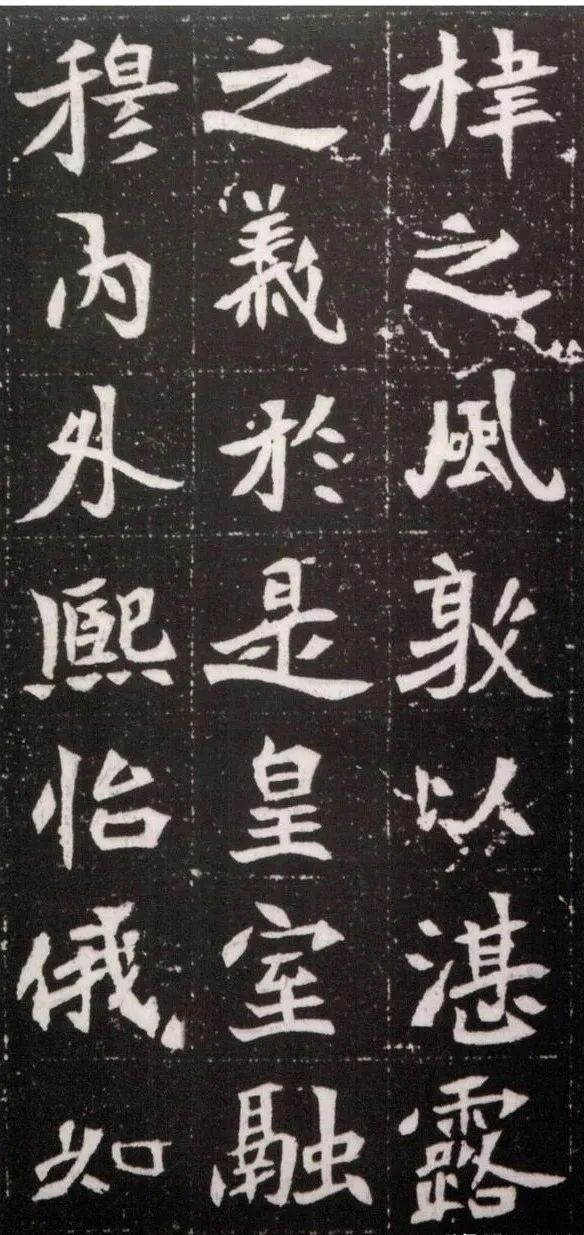 椲之風敦以湛露
之義於是皇室融
穆內外熙怡俄如